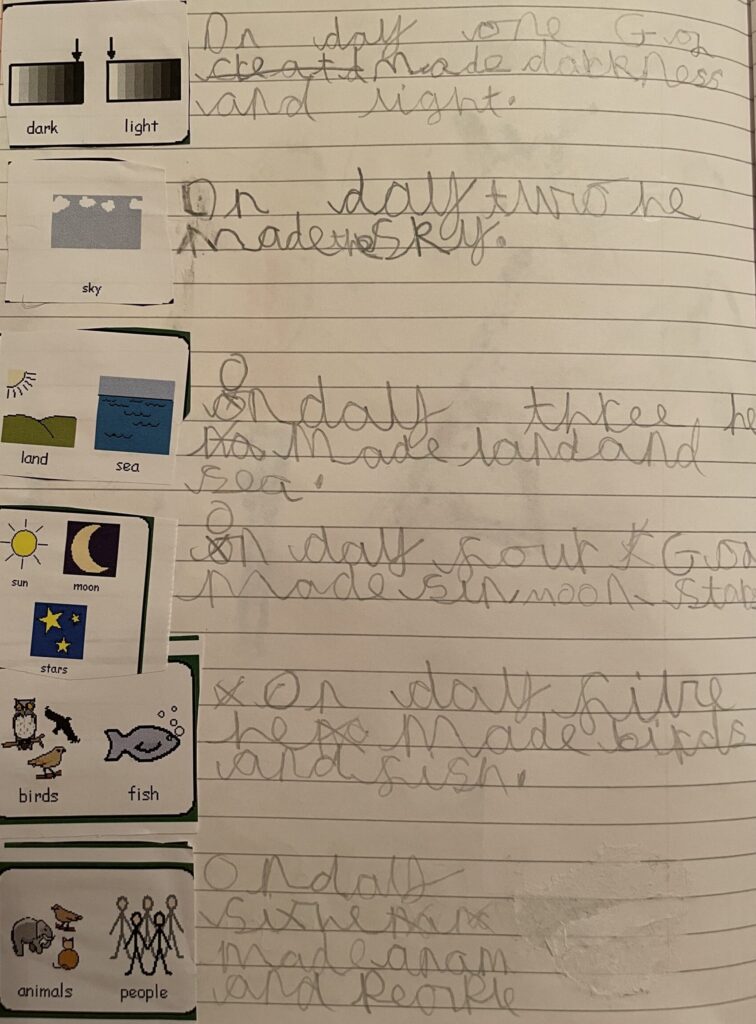 dark light
On day one God
creatt made darkness
and light.
sky
On day two he
made the sky.
land sea
On day three he
made land and
sea.
sun moon
stars
On day four God
made sun moon stars
birds fish
On day five
he made birds
and fish.
animals people
On day
six he
made anam
and people